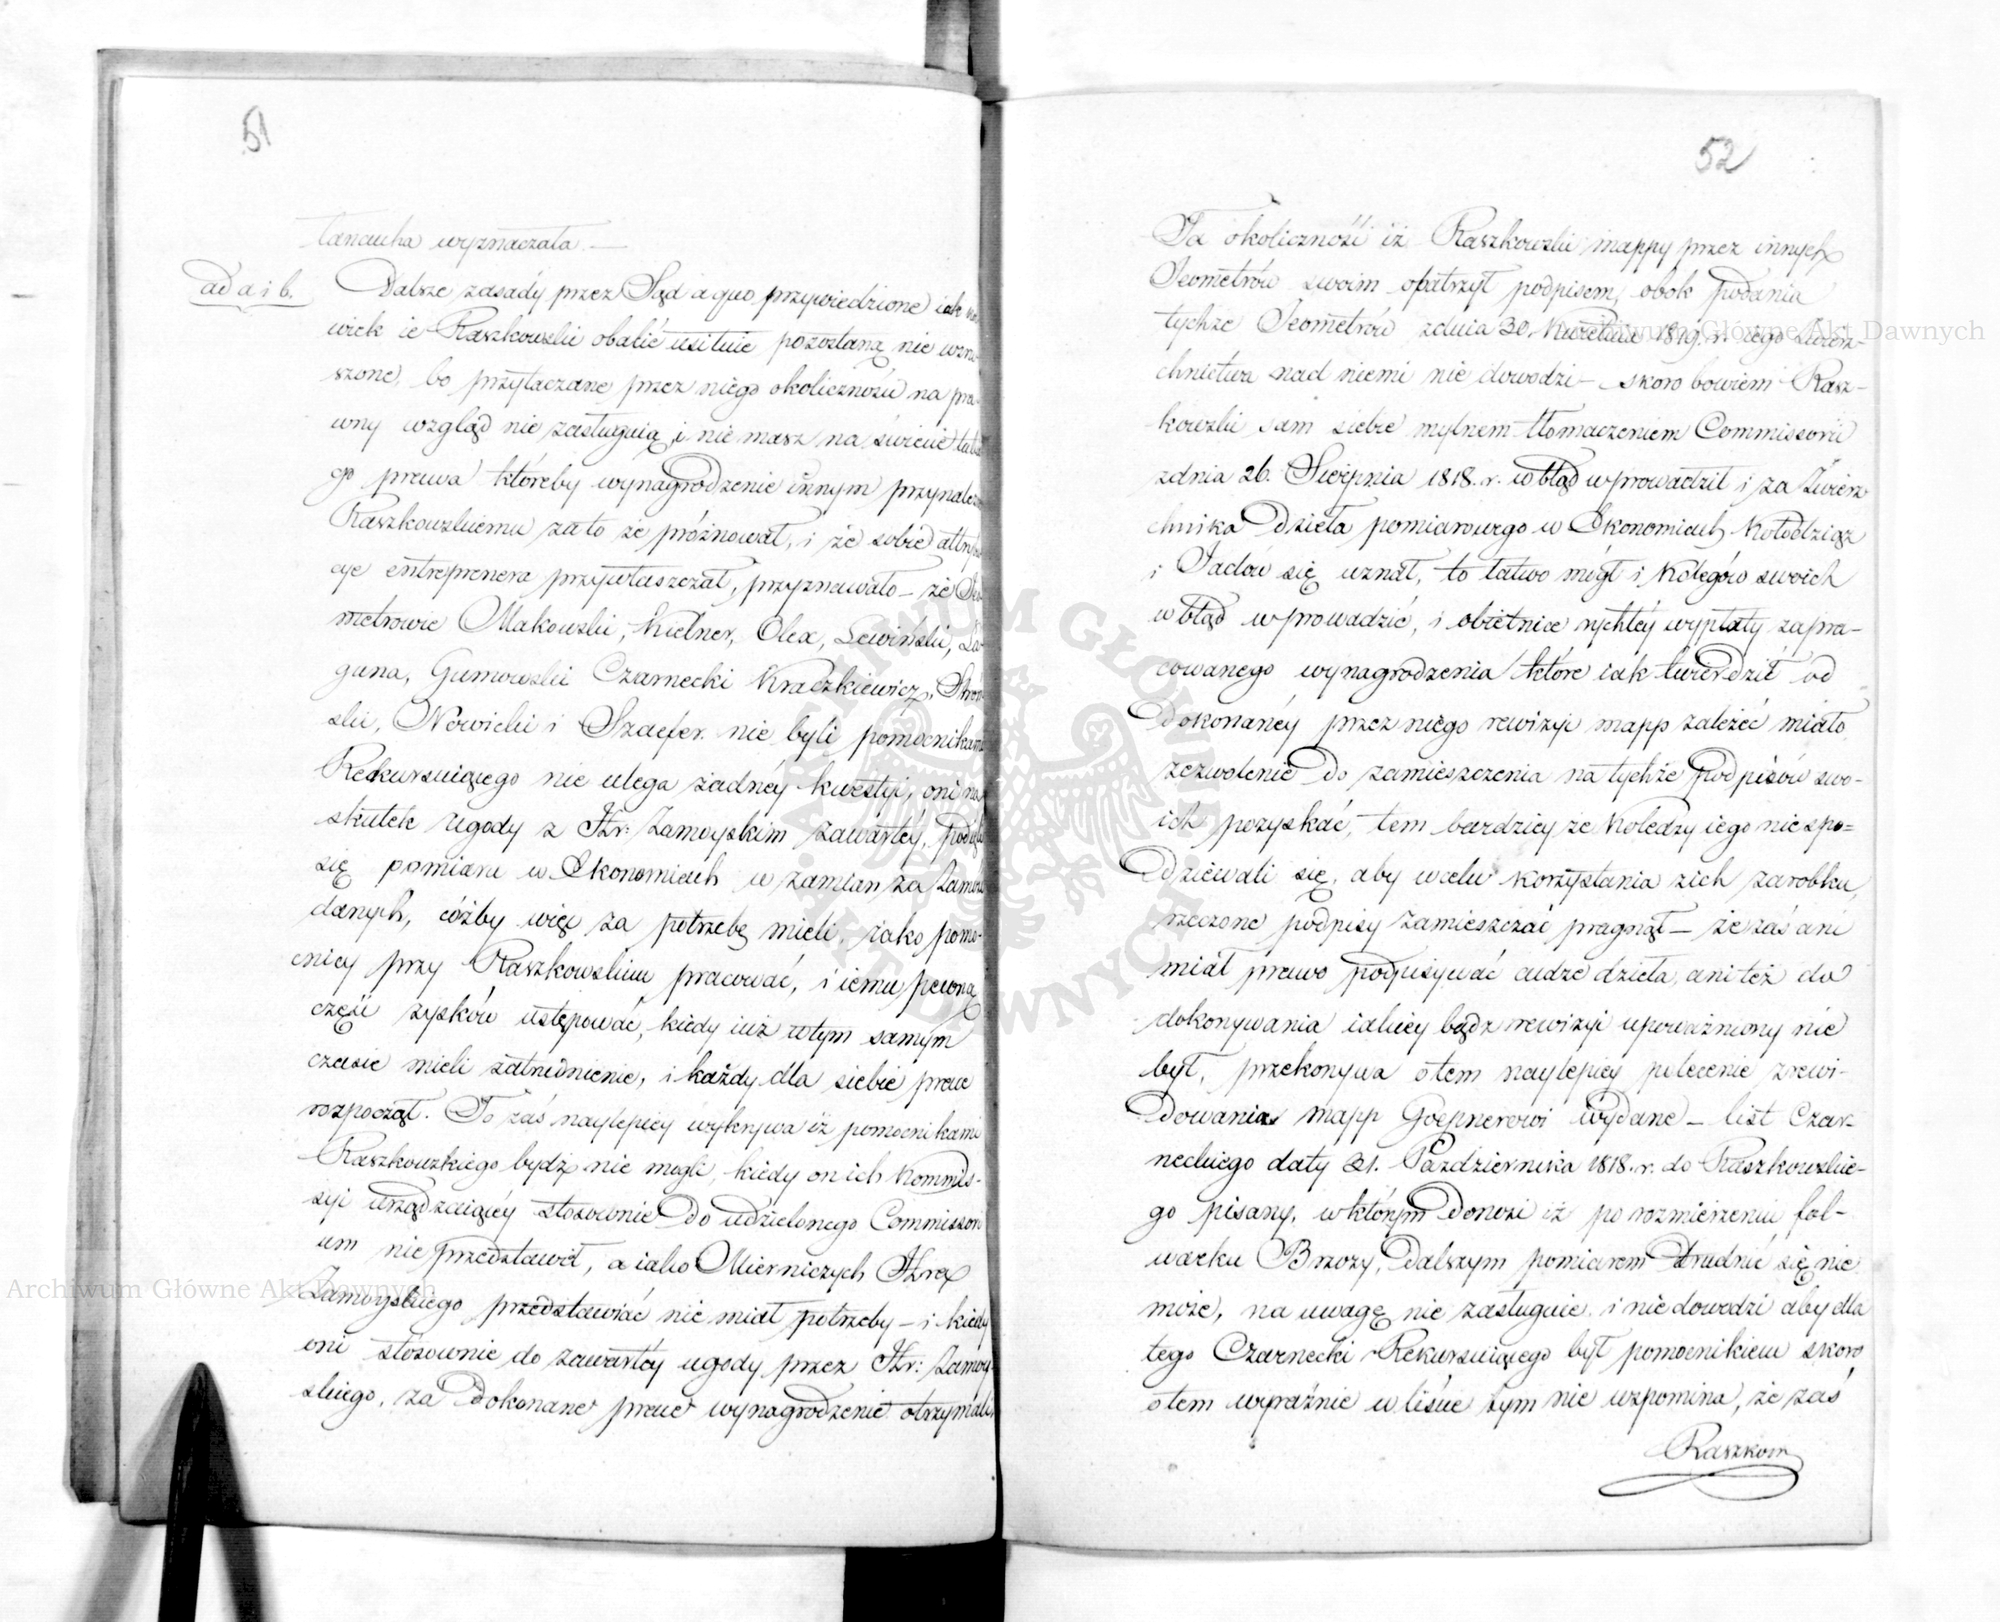 51
łancucha wyznaczała. —
ad a i b. Dalsze zasady przez Sąd a quo przywiedzione iak
wiek ie Raszkowski obalić usiłuie pozostaną nie wzru
szone, bo przytaczane przez niego okoliczności na pra
wny wzgląd nie zasługuią, i nie masz na świecie take
go prawa któreby wynagrodzenie innym przynależne
Raszkowskiemu za to że próżnował, i że sobie attrybu
cye entreprenera przywłaszczał, przyznawało — że Jeo
metrowie Makowski, Kielner, Olex, Lewiński, La
guna, Gumowski Czarnecki Kraczkiewicz,
ski, Nowicki i Szaefer nie byli pomocnikami
Rekursuiącego nie ulega żadnéy kwestyi, oni na
skutek ugody z Hr: Zamoyskim zawartéy, podięli
się pomiaru w Ekonomiach w zamian za Zamoy
danych, cóżby więc za potrzebę mieli, iako pomo-
cnicy przy Raszkowskim pracować, i iemu pewną
części zysków ustępować, kiedy iuż w tym samym
czasie mieli zatrudnienie, i każdy dla siebie prace
rozpoczął. To zaś naylepiey wykrywa iż pomocnikami
Raszkowskiego bydź nie mogli, kiedy on ich Kommis-
syi urządzaiącéy stosownie do udzielonego Commissori
um nie przedstawił, a iako Mierniczych Hra
Zamoyskiego przedstawiać nie miał potrzeby — i kiedy
oni stosownie do zawartéy ugody przez Hr: Zamoy-
skiego, za dokonane prace wynagrodzenie otrzymali,
52
Ta okoliczność iż Raszkowski mappy przez innych
Jeometrów swoim opatrzył podpisem, obok podania
tychże Jeometrów z dnia 30. Kwietnia 1819. r. iego Zwierz-
chnictwa nad niemi nie dowodzi — skoro bowiem Rasz-
kowski sam siebie mylnem tłomaczeniem Commissorii
z dnia 26. Sierpnia 1818. r. w błąd wprowadził i za Zwierz
chnika Dzieła pomiarowego w Ekonomiach Kołodziąż
i Jadów się uznał, to łatwo mógł i Kolegów swoich
w błąd wprowadzić, i obietnice rychłéy wypłaty zapra-
cowanego wynagrodzenia które iak twierdził od
dokonanéy przez niego rewizyi mapp zależeć miało
zezwolenie do zamieszczenia na tychże podpisów swo-
ich pozyskać, tem bardziey ze Koledzy iego nie spo-
dziewali się, aby w celu korzystania z ich zarobku,
rzeczone podpisy zamieszczać pragnął — że zaś ani
miał prawo podpisywać cudze dzieła, ani też do
dokonywania iakiey bądź rewizyi upoważniony nie
był, przekonywa o tem naylepiey polecenie zrewi-
dowania mapp Goepnerowi wydane — list Czar-
neckiego daty 21. Października 1818. r. do Raszkowskie-
go pisany, w którym donosi iż po rozmierzeniu fol-
warku Brzozy, dalszym pomiarem trudnić się nie
może, na uwagę nie zasługuie i nie dowodzi aby dla
tego Czarnecki Rekursuiącego był pomocnikiem skoro
o tem wyraźnie w liście tym nie wzpomina, że zaś
Raszkow
Archiwum Główne Akt Dawnych
Archiwum Główne Akt Dawnych
ARCHIWUM GŁÓWNE AKT DAWNYCH